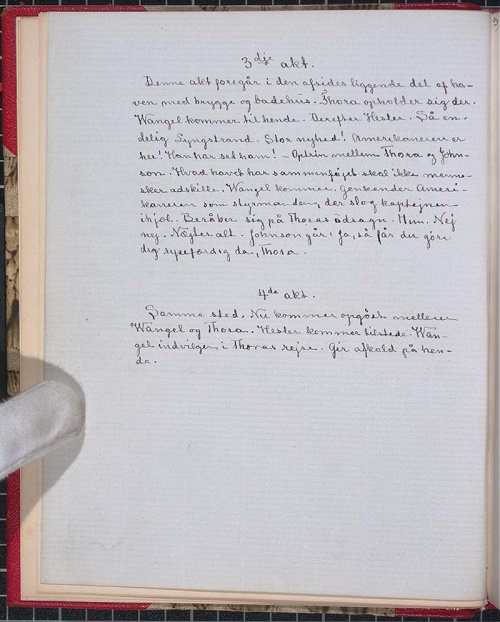 3dje akt.
Denne akt foregår i den afsides liggende del af ha-
ven med brygge og badehus. Thora opholder sig der.
Wangel kommer til hende. Derefter Hesler. Så en-
delig Lyngstrand. Stor nyhed! Amerikaneren er
her! Han har set ham! – Optrin mellem Thora og John-
son. Hvad havet har sammenføjet skal ikke menne-
sker adskille. Wangel kommer. Genkender Ameri-
kaneren som styrmanden, der slog kaptejnen
ihjel. Beråber sig på Thoras udsagn. Hun: Nej
nej. Nægter alt. Johnson går: Ja, så får du gøre
dig rejsefærdig da, Thora.
4de akt.
Samme sted. Nu kommer opgöret mellem
Wangel og Thora. Hesler kommer tilstede. Wan-
gel indvilger i Thoras rejse. Gir afkald på hen-
de.